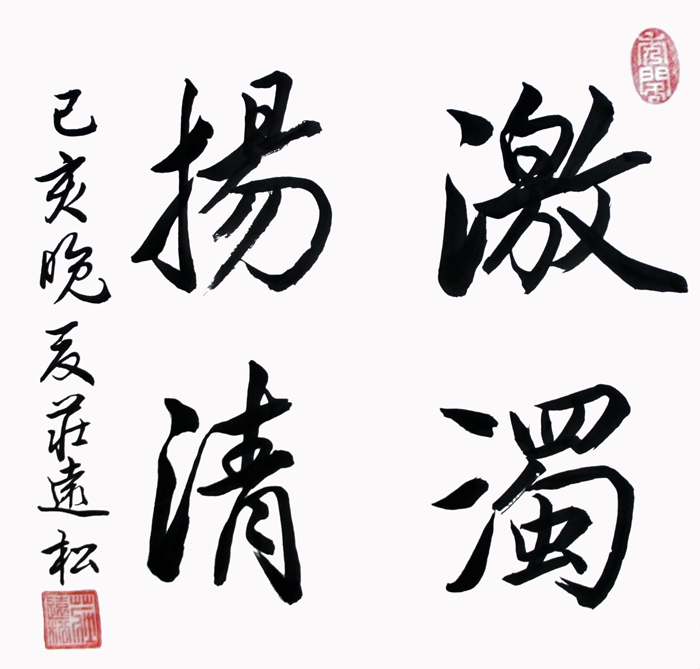 激濁
揚清
己亥晚夏莊遠松